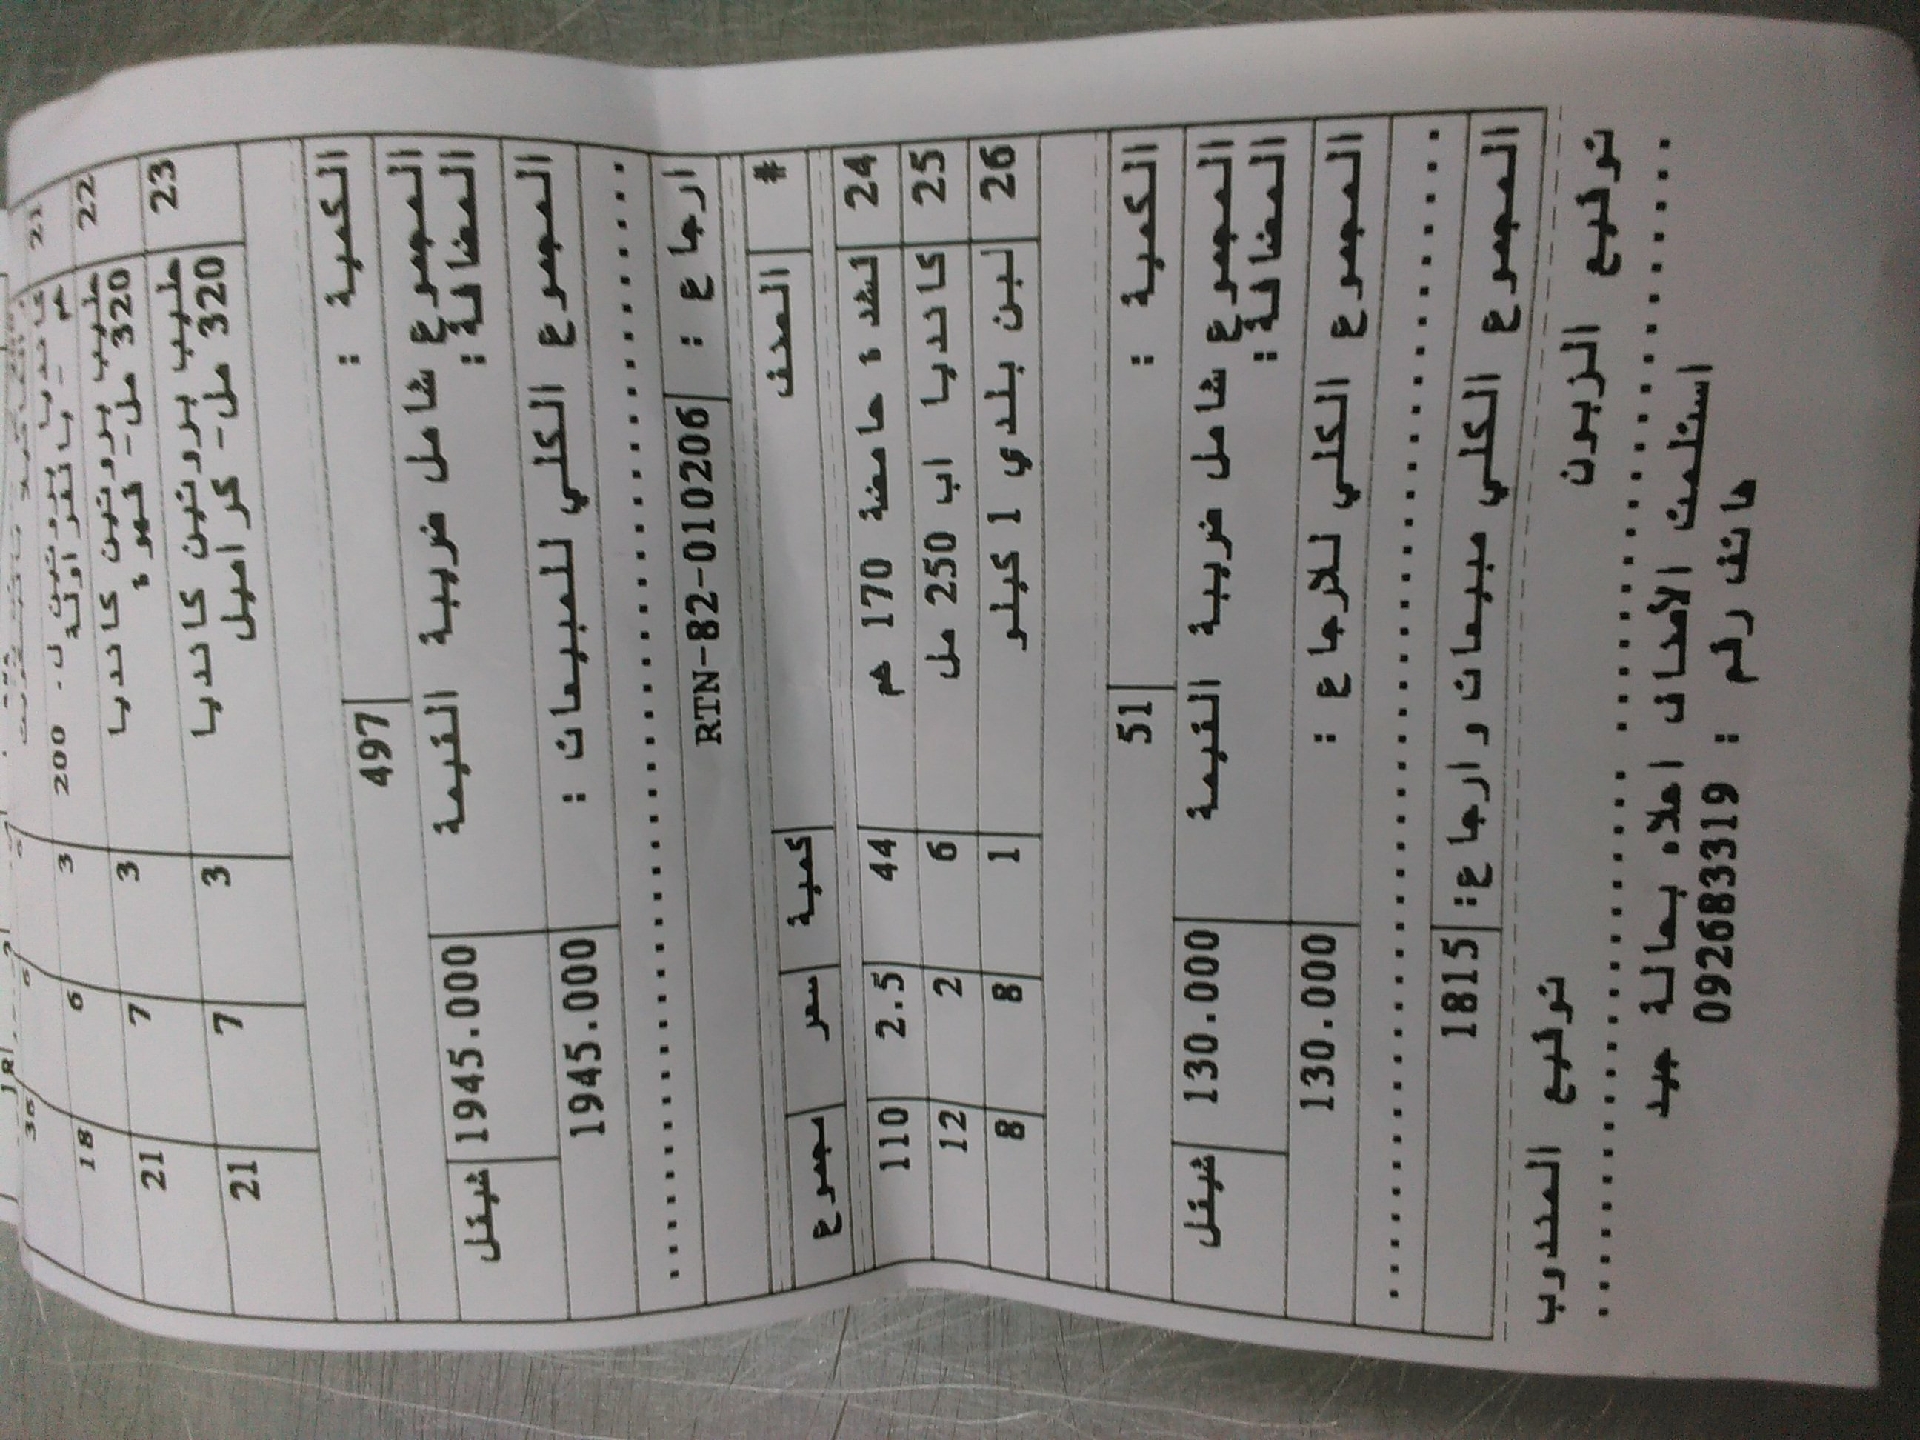 21
22 كانديا بروتين ل. 200 3 6 18
مل - بالفراولة
حليب بروتين كانديا 3 7 21
320 مل- قهوة
23 حليب بروتين كانديا 3 7 21
320 مل- كراميل
الكمية : 497
المجموع شامل ضريبة القيمة 1945.000 شيقل
المضافة:
المجموع الكلي للمبيعات : 1945.000
ارجاع : RTN-82-010206
# الصنف كمية سعر مجموع
24 قشدة حامضة 170 غم 44 2.5 110
25 كانديا اب 250 مل 6 2 12
26 لبن بلدي 1 كيلو 1 8 8
الكمية : 51
المجموع شامل ضريبة القيمة 130.000 شيقل
المضافة:
المجموع الكلي للارجاع : 130.000
المجموع الكلي مبيعات وارجاع: 1815
توقيع الزبون توقيع المندوب
استلمت الأصناف اعلاه بحالة جيد
هاتف رقم : 092683319